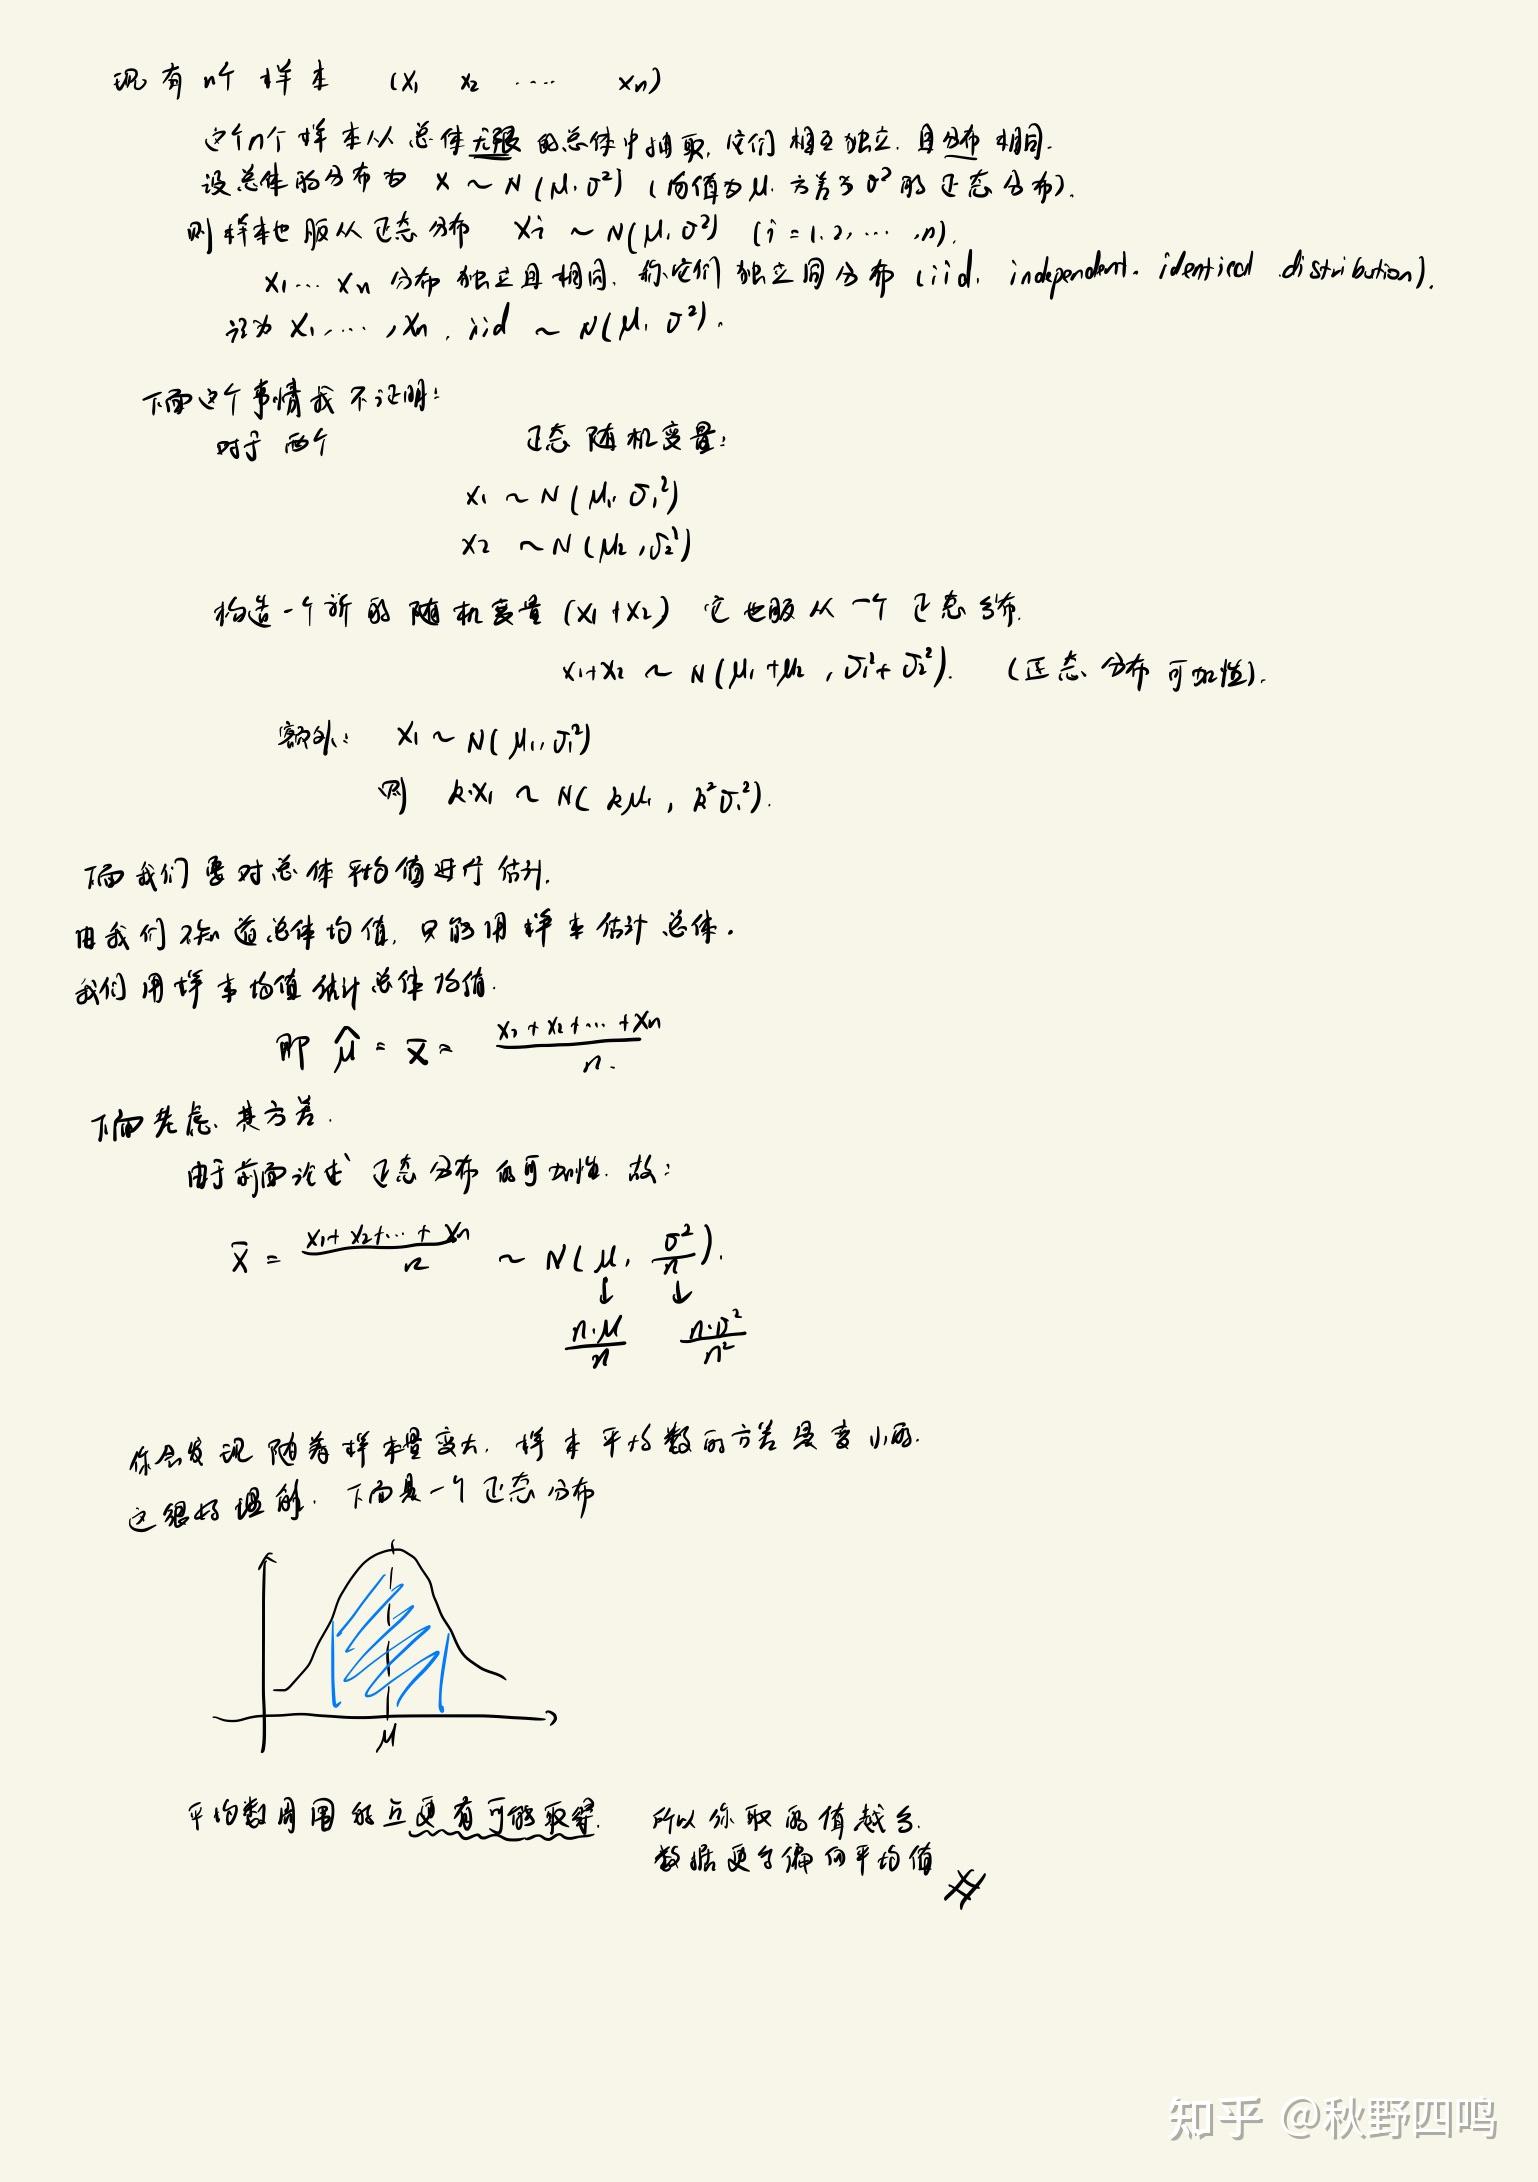 现有n个样本 (x₁ x₂ ···· xₙ)
这个n个样本从总体无限的总体中抽取,它们相互独立.且分布相同.
设总体的分布为 X ~ N(μ,σ²) (均值为μ.方差为σ²的正态分布).
则样本也服从正态分布 Xi ~ N(μ,σ²) (i=1,2,···,n).
x₁··· xₙ 分布独立且相同.称它们独立同分布(iid. independent. identical distribution).
记为 x₁,···,xₙ, iid ~ N(μ,σ²).
下面这个事情我不证明:
对于两个 正态随机变量:
x₁ ~ N(μ₁,σ₁²)
x₂ ~ N(μ₂,σ₂²)
构造一个新的随机变量(x₁+x₂) 它也服从一个正态分布.
x₁+x₂ ~ N(μ₁+μ₂,σ₁²+σ₂²). (正态分布可加性).
额外: x₁ ~ N(μ₁,σ₁²)
则 k·x₁ ~ N(kμ₁,k²σ₁²).
下面我们要对总体平均值进行估计.
由我们不知道总体均值,只能用样本估计总体.
我们用样本均值估计总体均值.
即 μ̂ = x̄ = (x₁+x₂+···+xₙ)/n.
下面考虑其方差.
由于前面论述正态分布的可加性.故:
x̄ = (x₁+x₂+···+xₙ)/n ~ N(μ,σ²/n).
↓ ↓
n·μ/n n·σ²/n²
你会发现随着样本量变大,样本平均数的方差是变小的.
这很好理解.下面是一个正态分布
μ
平均数周围的点更有可能取得. 所以你取的值越多.
数据更多偏向平均值 #
知乎 @秋野四鸣